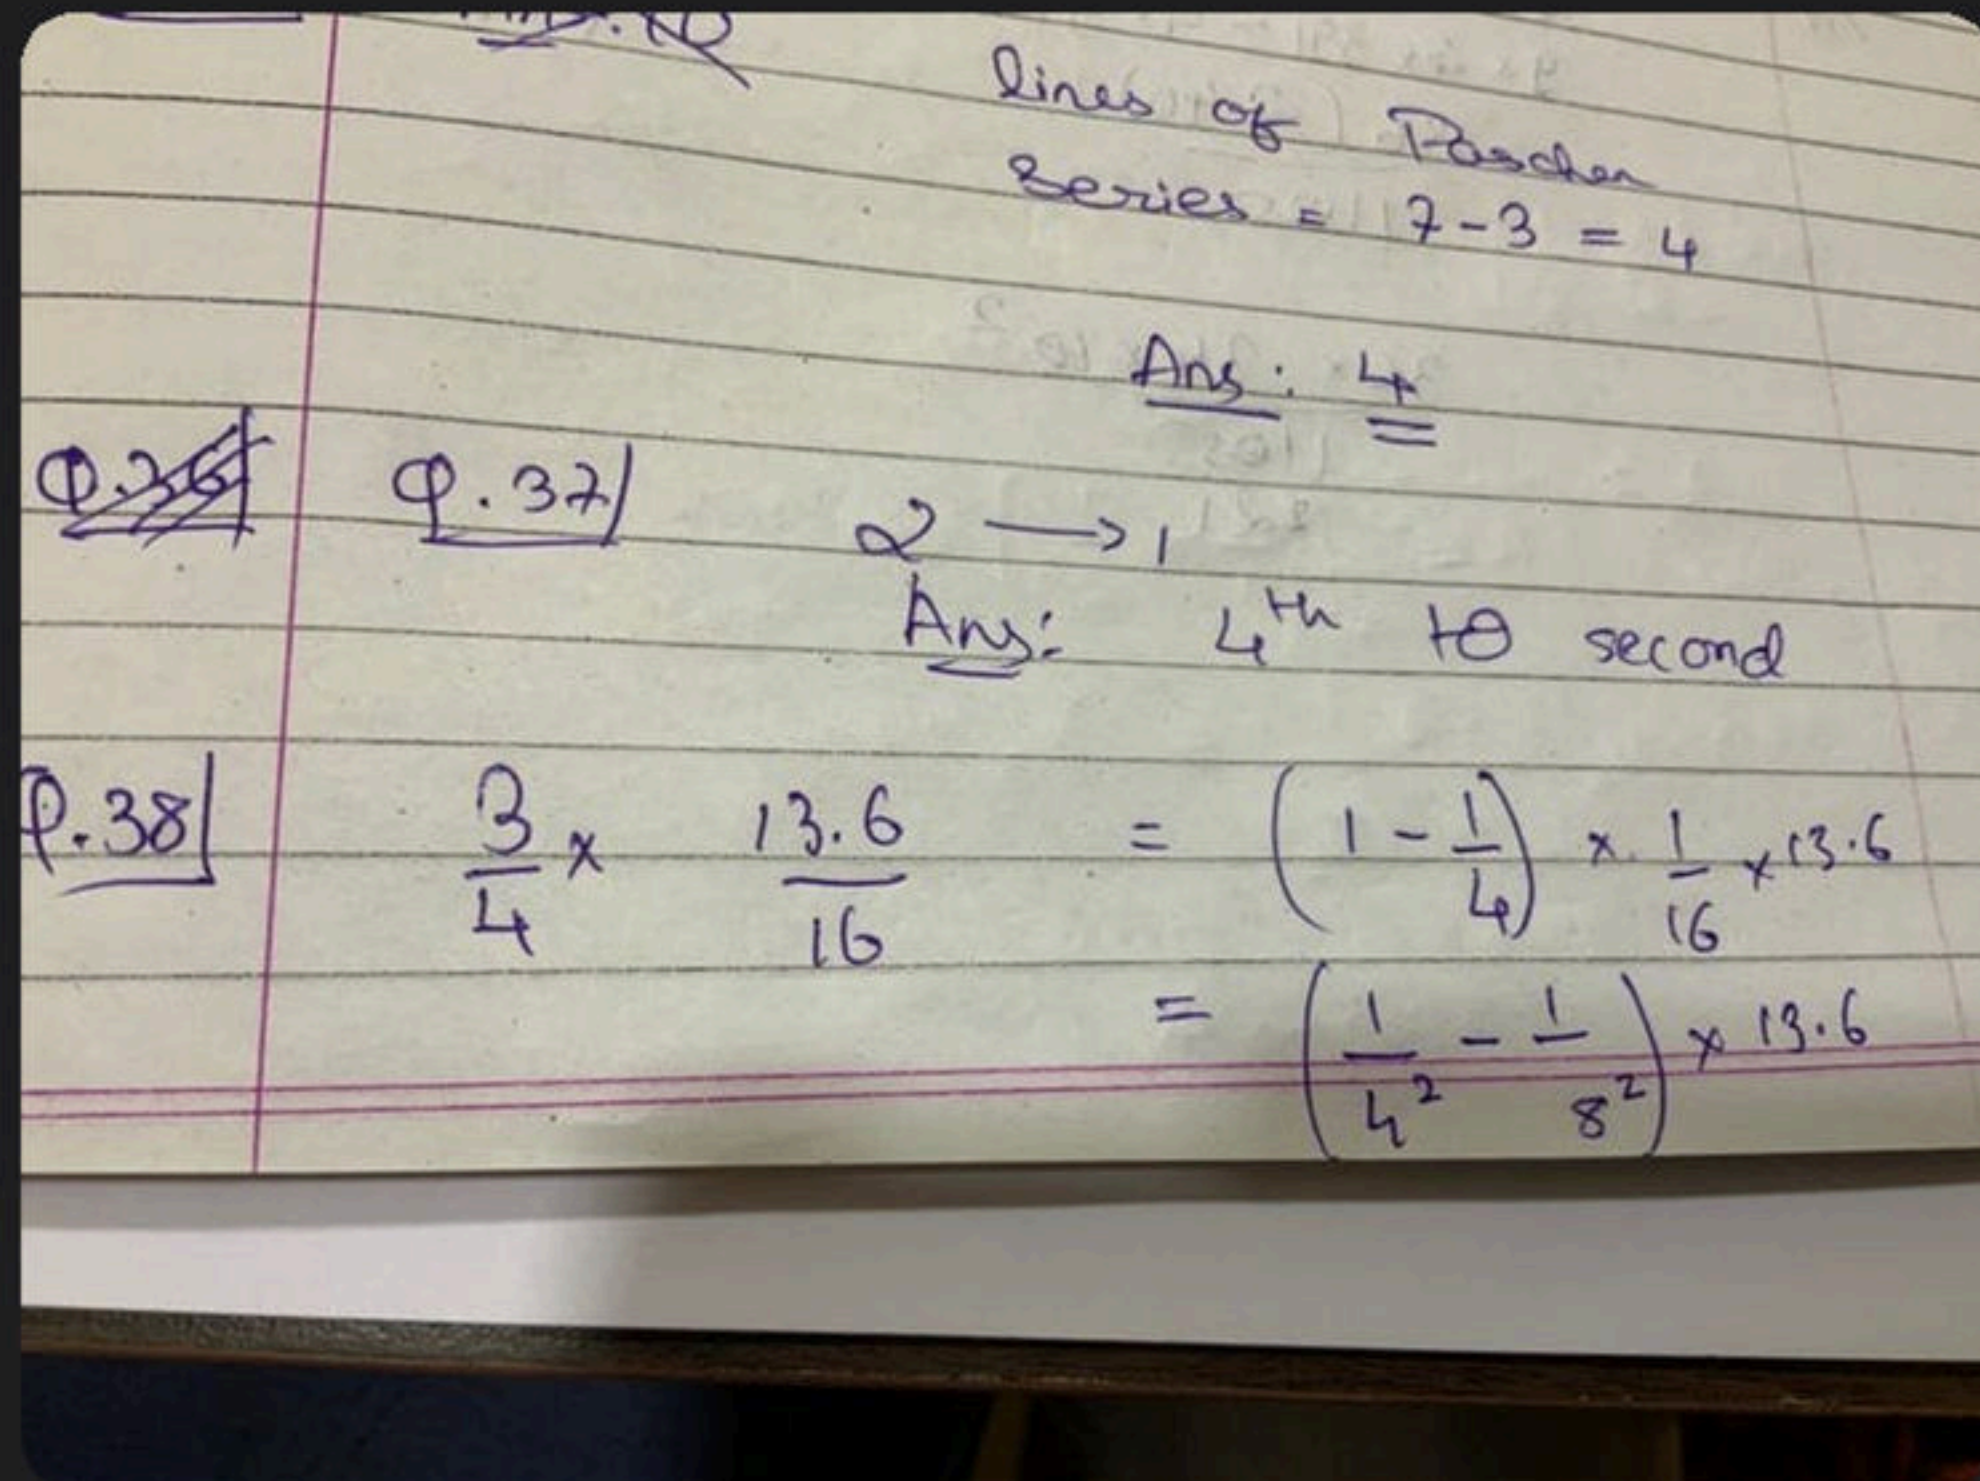 lines of Paschen
series = 7 - 3 = 4
Ans: 4
Q.36 Q.37 2 → 1
Ans: 4th to second
Q.38 3/4 × 13.6/16 = (1 - 1/4) × 1/16 × 13.6
= (1/4² - 1/8²) × 13.6